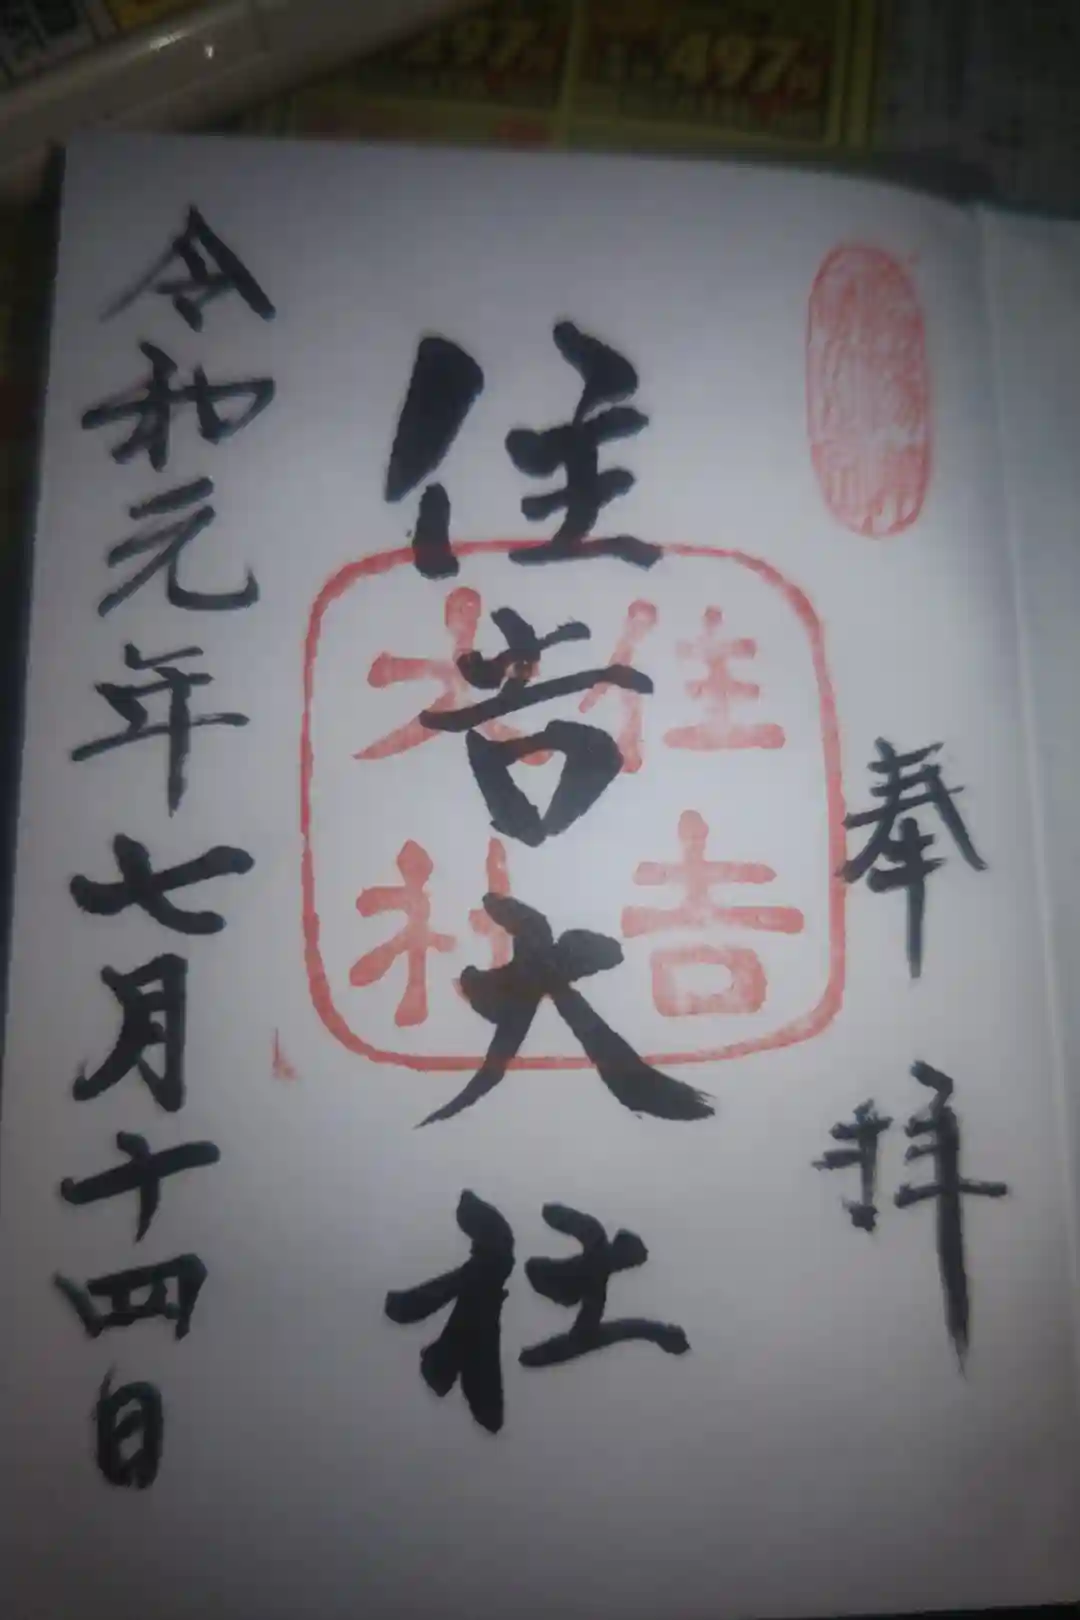 奉拝
住吉大社
住吉
大社
令和元年七月十四日
497
497